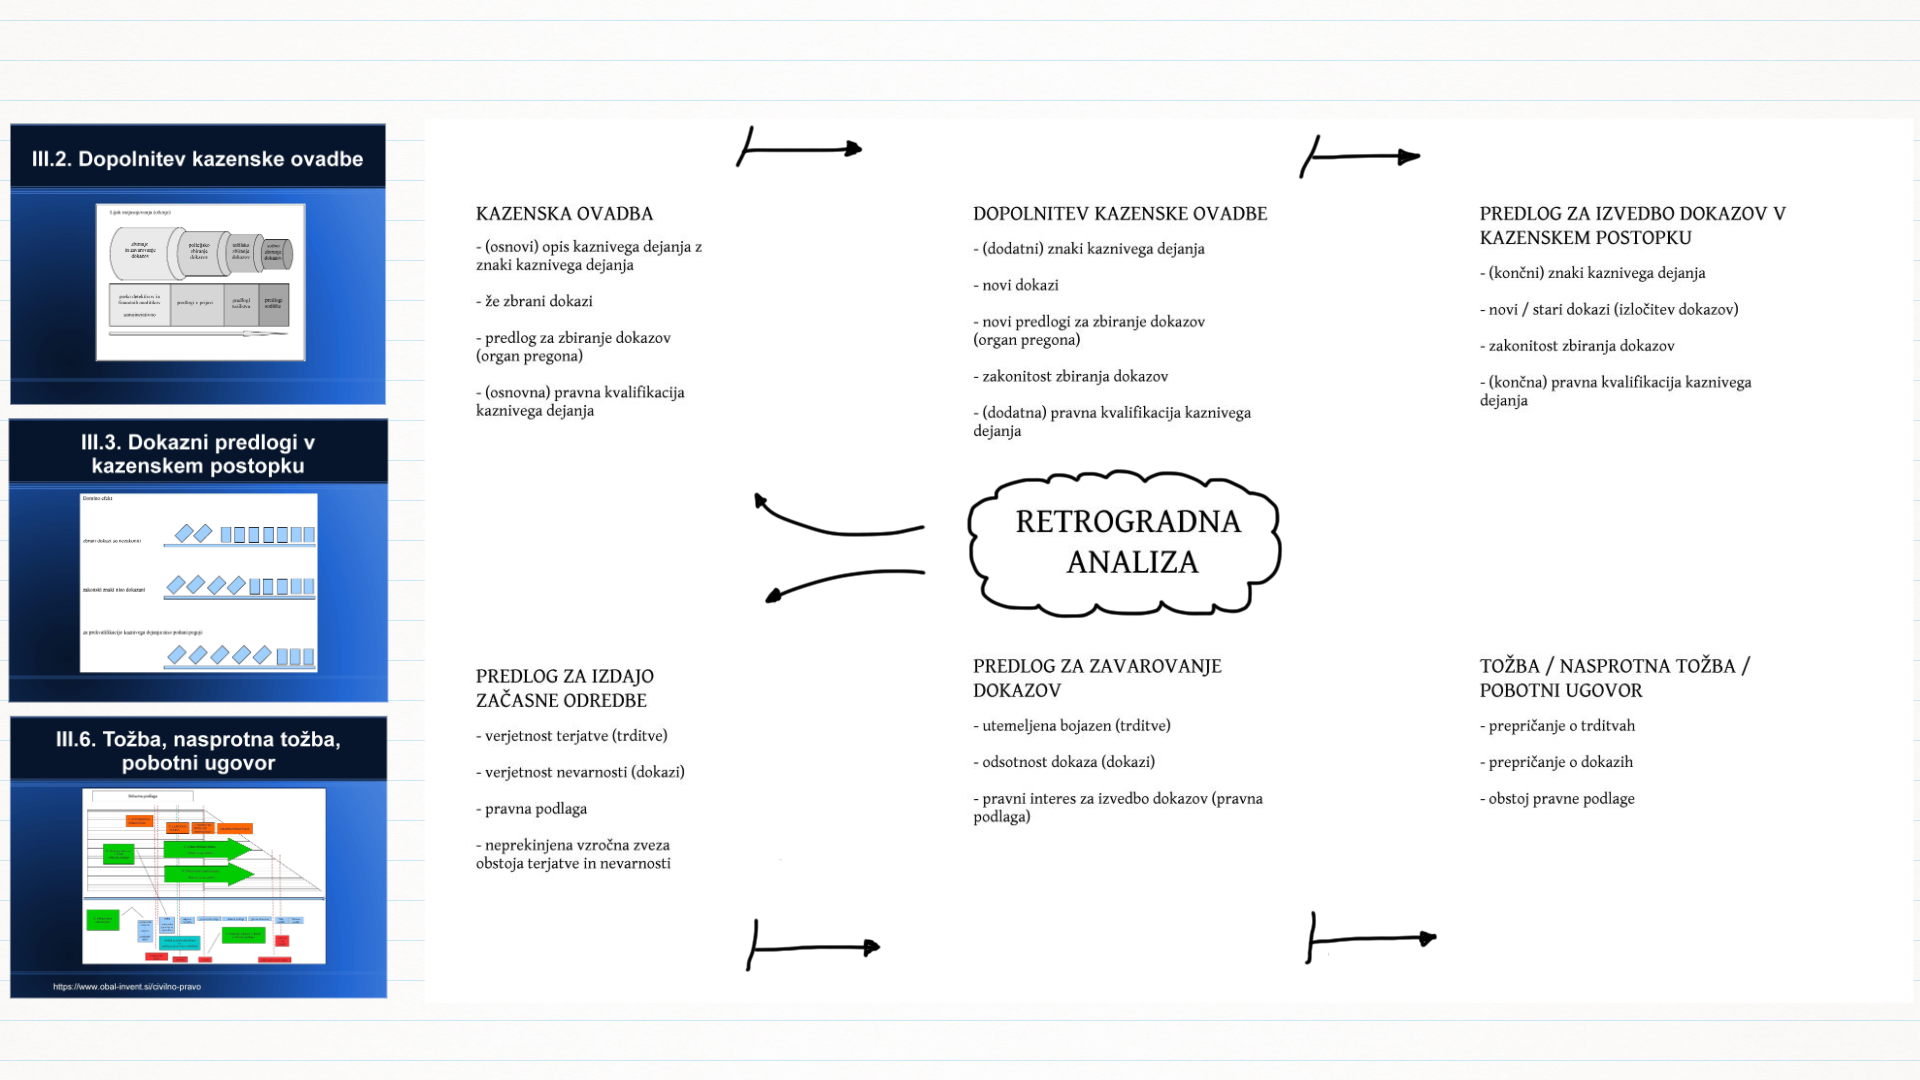 III.2. Dopolnitev kazenske ovadbe
III.3. Dokazni predlogi v
kazenskem postopku
Domino efekt
zbrani dokazi so nezakoniti
zakonski znaki niso dokazani
za prekvalifikacijo kaznivega dejanja niso podani pogoji
III.6. Tožba, nasprotna tožba,
pobotni ugovor
https://www.obal-invent.si/civilno-pravo
KAZENSKA OVADBA
- (osnovi) opis kaznivega dejanja z
znaki kaznivega dejanja
- že zbrani dokazi
- predlog za zbiranje dokazov
(organ pregona)
- (osnovna) pravna kvalifikacija
kaznivega dejanja
DOPOLNITEV KAZENSKE OVADBE
- (dodatni) znaki kaznivega dejanja
- novi dokazi
- novi predlogi za zbiranje dokazov
(organ pregona)
- zakonitost zbiranja dokazov
- (dodatna) pravna kvalifikacija kaznivega
dejanja
PREDLOG ZA IZVEDBO DOKAZOV V
KAZENSKEM POSTOPKU
- (končni) znaki kaznivega dejanja
- novi / stari dokazi (izločitev dokazov)
- zakonitost zbiranja dokazov
- (končna) pravna kvalifikacija kaznivega
dejanja
RETROGRADNA
ANALIZA
PREDLOG ZA IZDAJO
ZAČASNE ODREDBE
- verjetnost terjatve (trditve)
- verjetnost nevarnosti (dokazi)
- pravna podlaga
- neprekinjena vzročna zveza
obstoja terjatve in nevarnosti
PREDLOG ZA ZAVAROVANJE
DOKAZOV
- utemeljena bojazen (trditve)
- odsotnost dokaza (dokazi)
- pravni interes za izvedbo dokazov (pravna
podlaga)
TOŽBA / NASPROTNA TOŽBA /
POBOTNI UGOVOR
- prepričanje o trditvah
- prepričanje o dokazih
- obstoj pravne podlage